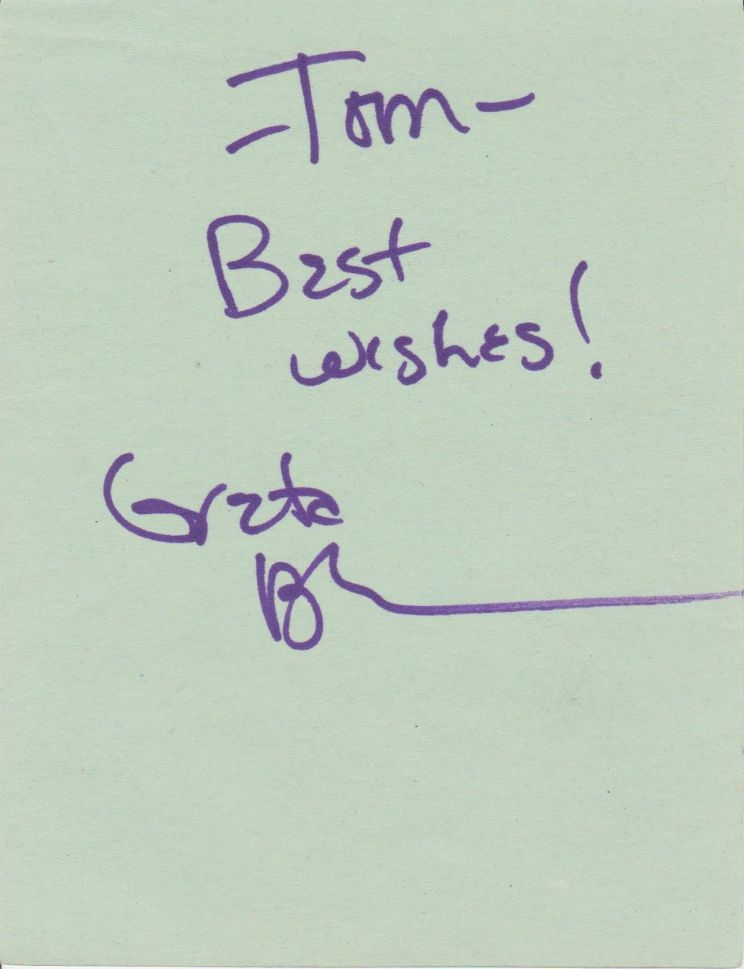 -Tom-
Best
wishes!
Greta